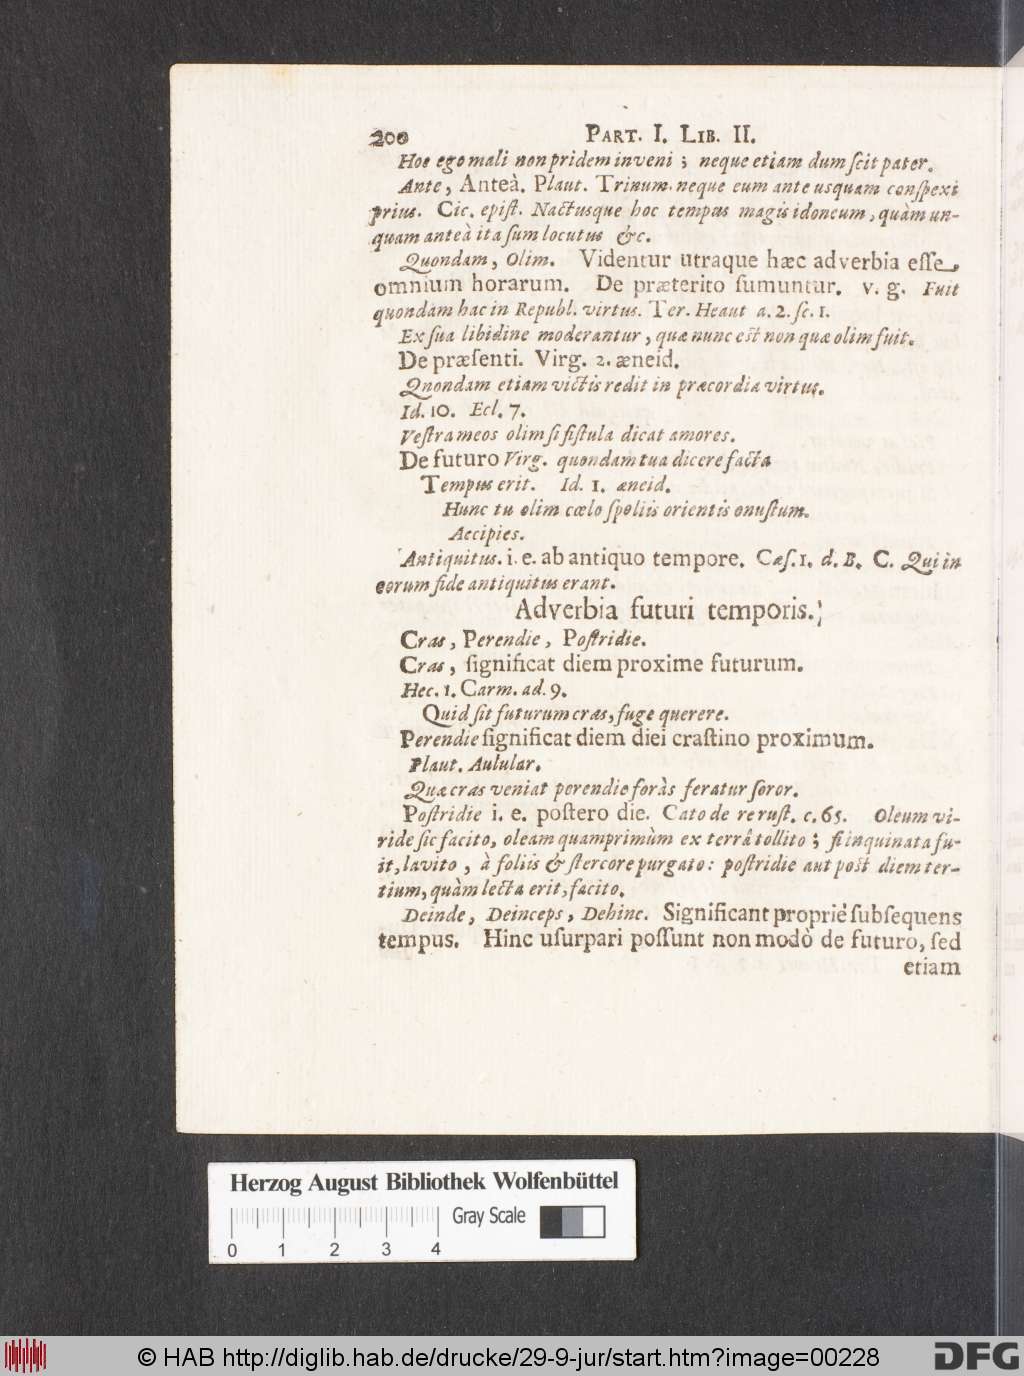 200 PART. I. LIB. II.
Hoc ego mali non pridem inveni ; neque etiam dum ſcit pater.
Ante, Anteà. Plaut. Trinum. neque eum ante usquam conſpexi
prius. Cic. epiſt. Nactusque hoc tempus magis idoneum, quàm un-
quam anteà ita ſum locutus &c.
Quondam, Olim. Videntur utraque hæc adverbia eſſe
omnium horarum. De præterito ſumuntur. v. g. Fuit
quondam hac in Republ. virtus. Ter. Heaut a. 2. ſc. 1.
Ex ſua libidine moderantur, quæ nunc eſt non quæ olim fuit.
De præſenti. Virg. 2. æneid.
Qnondam etiam victis redit in præcordia virtus.
Id. 10. Ecl. 7.
Veſtra meos olim ſi fiſtula dicat amores.
De futuro Virg. quondam tua dicere facta
Tempus erit. Id. 1. æneid.
Hunc tu olim cœlo ſpoliis orientis onuſtum.
Accipies.
Antiquitus. i. e. ab antiquo tempore. Cæſ. 1. d. B. C. Qui in
eorum fide antiquitus erant.
Adverbia futuri temporis.
Cras, Perendie, Poſtridie.
Cras, ſignificat diem proxime futurum.
Hec. 1. Carm. ad. 9.
Quid ſit futurum cras, fuge querere.
Perendie ſignificat diem diei craſtino proximum.
Plaut. Aulular.
Quæ cras veniat perendie foràs feratur ſoror.
Poſtridie i. e. poſtero die. Cato de re ruſt. c. 65. Oleum vi-
ride ſic facito, oleam quamprimùm ex terrâ tollito ; ſi inquinata fu-
it, lavito, à foliis & ſtercore purgato: poſtridie aut poſt diem ter-
tium, quàm lecta erit, facito.
Deinde, Deinceps, Dehinc. Significant propriè ſubſequens
tempus. Hinc uſurpari poſſunt non modò de futuro, ſed
etiam
Herzog August Bibliothek Wolfenbüttel
Gray Scale
0 1 2 3 4
© HAB http://diglib.hab.de/drucke/29-9-jur/start.htm?image=00228
DFG